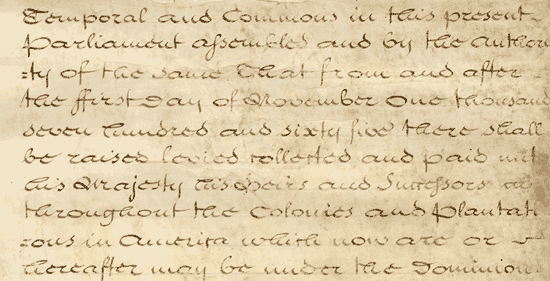 Temporal and Commons in this present
Parliament assembled and by the Author
=ty of the same That from and after
the ffirst Day of November One thousand
seven hundred and sixty five there shall
be raised levied collected and paid
his Majesty his Heirs and Successors
throughout the Colonies and Plantati
=ons in America which now are or
hereafter may be under the Dominion